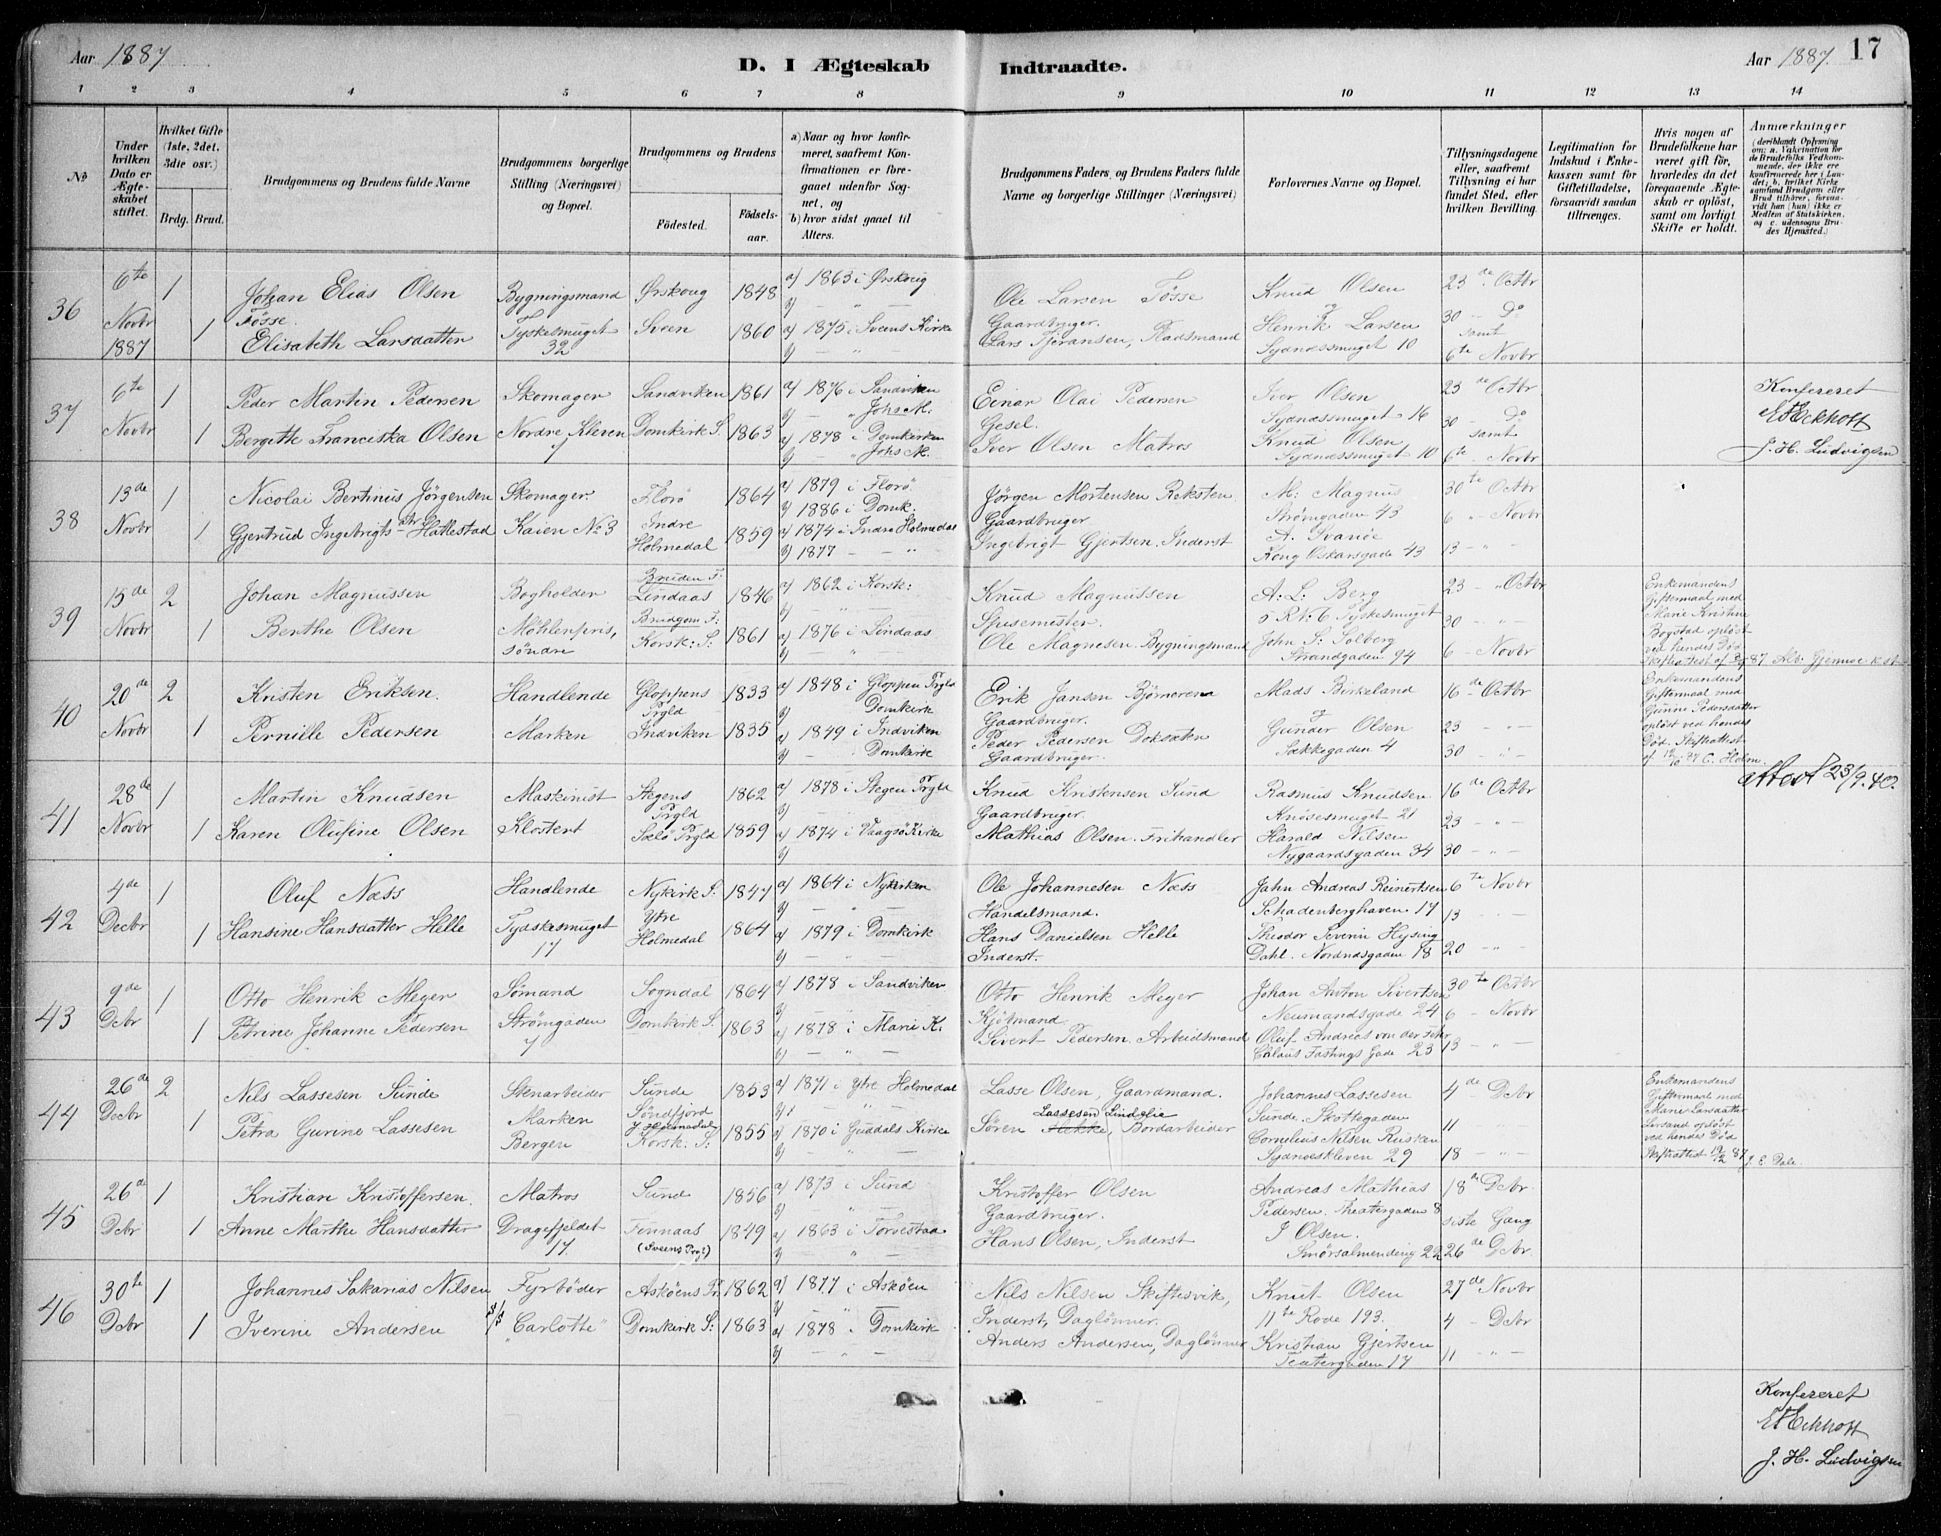 Aar 1887
D. I Ægteskab
Indtraadte.
Aar 1887.
17
1 2 3 4 5 6 7 8 9 10 11 12 13 14
No
Under hvilken Dato er Ægteskabet stiftet.
Hvilket Gifte (1ste, 2det, 3die osv.)
Brdg. Brud.
Brudgommens og Brudens fulde Navne
Brudgommens borgerlige Stilling (Næringsvei) og Bopæl.
Brudgommens og Brudens
Födested.
Födselsaar.
a) Naar og hvor konfirmeret, saafremt Konfirmationen er foregaaet udenfor Sognet, og
b) hvor sidst gaaet til Alters.
Brudgommens Faders og Brudens Faders fulde Navne og borgerlige Stillinger (Næringsvei)
Forlovernes Navne og Bopæl.
Tillysningsdagene eller, saafremt Tillysning ei har fundet Sted, efter hvilken Bevilling.
Legitimation for Indskud i Enkekassen samt for Giftetilladelse, forsaavidt saadan tiltrænges.
Hvis nogen af Brudefolkene har været gift för, hvorledes da det foregaaende Ægteskab er oplöst, samt om lovligt Skifte er holdt.
Anmærkninger
(deriblandt Oplysning om: a. Vakcination for de Brudefolks Vedkommende, der ikke ere konfirmerede her i Landet; b. hvilket Kirkesamfund Brudgom eller Brud tilhörer, forsaavidt han (hun) ikke er Medlem af Statskirken, og c. udensogns Brudes Hjemsted.)
36
6te Novbr 1887
1
Johan Elias Olsen Fösse.
Bygningsmand
Ørskoug 1848
a) 1863 i Ørskoug
b) — " —
Ole Larsen Fösse Gaardbruger.
Knud Olsen
23de Octbr
1
Elisabeth Larsdatter
Tyskesmuget 32
Sveen 1860
a) 1875 i Sveens Kirke
b) — "
Lars Tjeransen, Pladsmand
og Henrik Larsen
Sydnæssmuget 10
30 — Do
samt 6te Novbr
37
6te Novbr
1
Peder Martin Pedersen
Skomager
Sandviken 1861
a) 1876 i Sandviken
b) — " Johs K.
Einar Olai Pedersen Gesel.
Iver Olsen
Sydnæssmuget 16
23de Octbr
Konfereret
1
Bergitte Franciska Olsen
Nordre Kleven 7
Domkirk S. 1863
a) 1878 i Domkirken
b) " Johs K.
Iver Olsen Matros
Knud Olsen
Sydnæssmuget 10
30 — Do
samt 6te Novbr
J. H. Ludvigsen
38
13de Novbr
1
Nicolai Bertinus Jörgensen
Skomager
Florö 1864
a) 1879 i Florö
b) 1886 i Domk:
Jörgen Mortensen Reksten Gaardbruger
M: Magnus
Strömgaden 43
30te Octbr
1
Gjertrud Ingebrigtsdtr Hattestad
Kaien No 3
Indre Holmedal 1859
a) 1874 i Indre Holmedal
b) 1877 — — "
Ingebrigt Gjertsen. Inderst
A. Svanöe
Kong Oskarsgade 43
6 " Novbr
13 — " —
39
15de Novbr
2
Johan Magnussen
Bogholder
Bruden F: Lindaas 1846
a) 1862 i Korsk:
b) — —
Knud Magnussen Spisemester.
A. L. Berg
5 R No 6 Tyskesmuget
23 — " Octbr
Enkemandens Giftermaal med Marie Kristine Bogstad oplöst ved hendes Död
1
Berthe Olsen
Möhlenpris, söndre
Brudgom F: Korsk: S: 1861
a) 1876 i Lindaas
b) — —
Ole Magnesen. Bygningsmand
John S: Solberg
Strandgaden 94
30 — " —
6 — Novbr
40
20de Novbr
2
Kristen Eriksen.
Handlende
Gloppens Prgld 1833
a) 1848 i Gloppen Prgld
b) Domkirk
Erik Jansen Björnereim Gaardbruger.
Mads Birkeland
16de Octbr
Enkemandens Giftermaal med Gunine Pedersdatter oplöst ved hendes Död. Skifteattest
1
Pernille Pedersen
Marken
Indviken 1835
a) 1849 i Indviken
b) — Domkirk
Peder Pedersen Doksæten Gaardbruger.
og Gunder Olsen
Sækkegaden 4
23 — " —
30 — " —
41
28de Novbr
1
Martin Knudsen
Maskinist
Stegens Prgld 1862
a) 1878 i Stegen Prgld
b)
Knud Kristensen Sund Gaardbruger.
Rasmus Knudsen
Knösesmuget 21
16de Octbr
Attest 23/9.40.
1
Karen Olufine Olsen
Klostert
Sælö Prgld 1859
a) 1874 i Vaagsö Kirke
b)
Mathias Olsen. Frihandler
Harald Nilsen
Nygaardsgaden 34
23 — " —
30 — " —
42
4de Decbr
1
Oluf Næss
Handlende
Nykirk S: 1847
a) 1864 i Nykirken
b) — " —
Ole Johannesen Næss Handelsmand.
Jahn Andreas Reinertsen
Schadenberghaven 17
6te Novbr
1
Hansine Hansdatter Helle
Tydskesmuget 17
Ytre Holmedal 1864
a) 1879 i Domkirk
b) — " —
Hans Danielsen Helle Inderst.
Theodor Severin Hysing Dahl. Nordnæsgaden 18
13 — " —
20 — " —
43
9de Dcbr
1
Otto Henrik Meyer
Sömand
Sogndal 1864
a) 1878 i Sandviken
b) — " —
Otto Henrik Meyer Kjötmand
Johan Anton Sivertsen
Neumandsgade 24
30te Octbr
1
Petrine Johanne Pedersen
Strömgaden 7
Domkirk S. 1863
a) 1878 i Marie K.
b) — " —
Sivert Pedersen. Arbeidsmand
Oluf Andreas von der
Claus Fastings Gade 23
6 — Novbr
13 — " —
44
26de Decbr
2
Nils Lassesen Sunde
Stenarbeider
Sunde Söndfjord 1853
a) 1871 i Ytre Holmedal
b) " —
Lasse Olsen, Gaardmand.
Johannes Lassesen Sunde. Skottegaden
4de Dcbr
Enkemandens Giftermaal med Marie Larsdatter oplöst ved hendes Död Skifteattest 19/12 87
J. E. Dale.
1
Petra Gurine Lassesen
Marken Bergen
Y Holmedal Korsk. S: 1855
a) 1870 i Guddals Kirke
b) — " —
Sören Lassesen Lindelie, Bordarbeider
Cornelius Nilsen
Sydnæskleven 29
11 " —
18 — " —
45
26de Dcbr
1
Kristian Kristoffersen.
Matros
Sund 1856
a) 1873 i Sund
b) " —
Kristoffer Olsen Gaardbruger.
Andreas Mathias Pedersen. Theatergaden 8
18de Dcbr.
1
Anne Marthe Hansdatter
Dragefjeldet 17
Finnaas (Sveens Prg?) 1849
a) 1863 i Torvestad
b) "
Hans Olsen, Inderst
I Olsen.
Smörsalmending 22
siste Gang
26de Dcbr.
46
30te Dcbr
1
Johannes Sakarias Nilsen
Fyrböder
Asköens Pr. 1862
a) 1877 i Asköen
b) — " —
Nils Nilsen Skiftesvik, Inderst, Daglönner.
Knut Olsen
11te Rode 193.
27de Novbr
1
Iverine Andersen
S/S "Carlotte"
Domkirk S: 1863
a) 1878 i Domkirk
b) — " —
Anders Andersen, Daglönner
Kristian Gjertsen
Teatergaden 17
4 — Dcbr
11 — " —
Konfereret
J. H. Ludvigsen